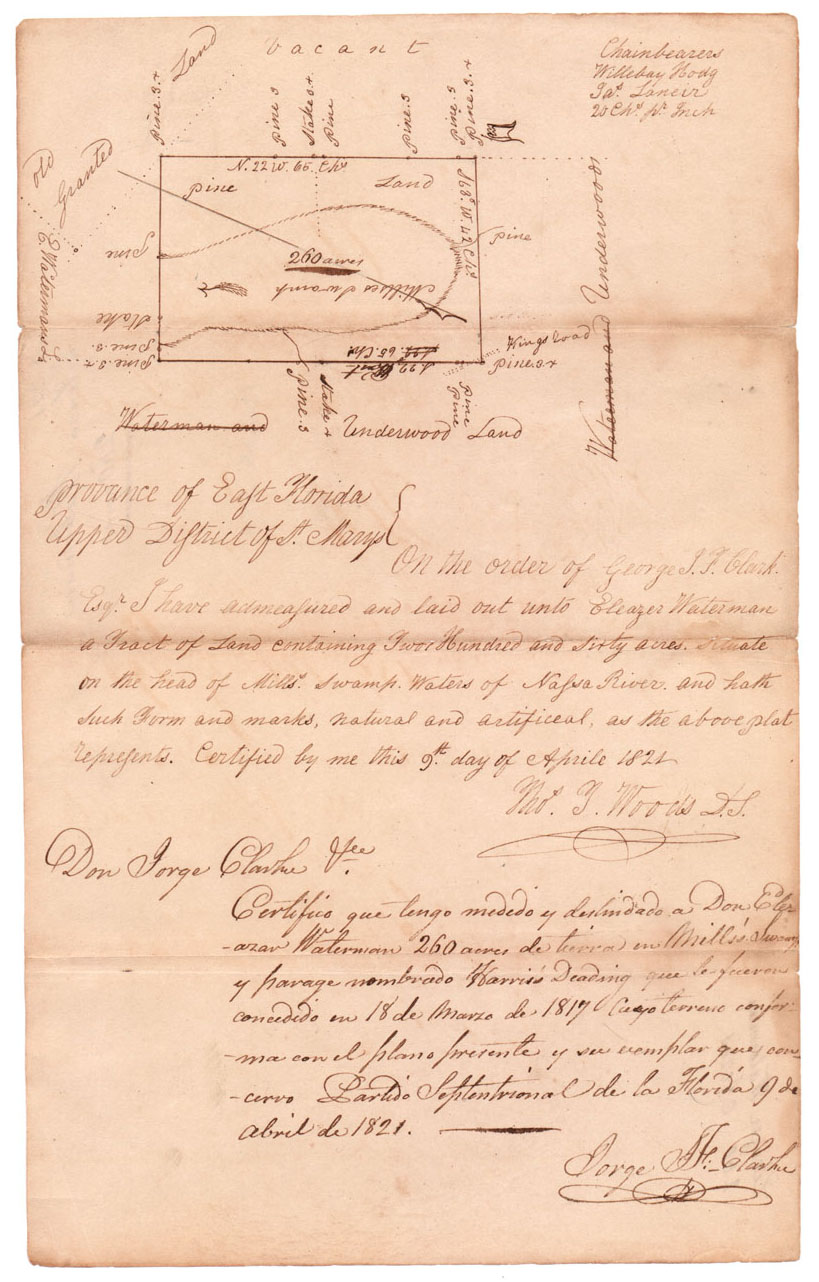 Vacant
Land
Old
Granted
Chainbearers
Willebay Hodg
Jas. Laneir
20 Chs. pr. Inch
Pine 3 x
Pine 3
Stake x
Pine
Pine 3
Pine 3
Pine 3 x
N. 22 W. 65. Chs
Pine
Land
S 68° W. 42 Chs.
Pine
Pine
260 acres
Millses Swamp
E. Watermans L.
Stake
Pine. 3.
Pine. 3. x
Kings Road
Pine. 3 x
65. Chs
Pine. 3
Stake x
Pine
Pine
Waterman and Underwoods
Waterman and Underwood Land
Province of East Florida
Upper District of St. Marys
On the order of George J. F. Clark
Esqr. I have admeasured and laid out unto Eleazer Waterman
a Tract of Land containing Two Hundred and Sixty acres. Situate
on the head of Mills. Swamp. Waters of Nassa River. and hath
Such Form and marks, natural and artificeal, as the above plat
represents. Certified by me this 9th. day of Aprile 1821
Thos. T. Woods D.S.
Don Jorge Clarke &ce.
Certifico que tengo medido y deslindado a Don
-azar Waterman 260 acres de tierra en Mills's Swamp
y parage nombrado Harris's Deading que le fueron
concedido en 18 de Marzo de 1817 Cuyo terreno confor-
-ma con el plano presente y su exemplar que con-
-cervo Partido Septentrional de la Florida 9 de
abril de 1821.
Jorge J. F. Clarke